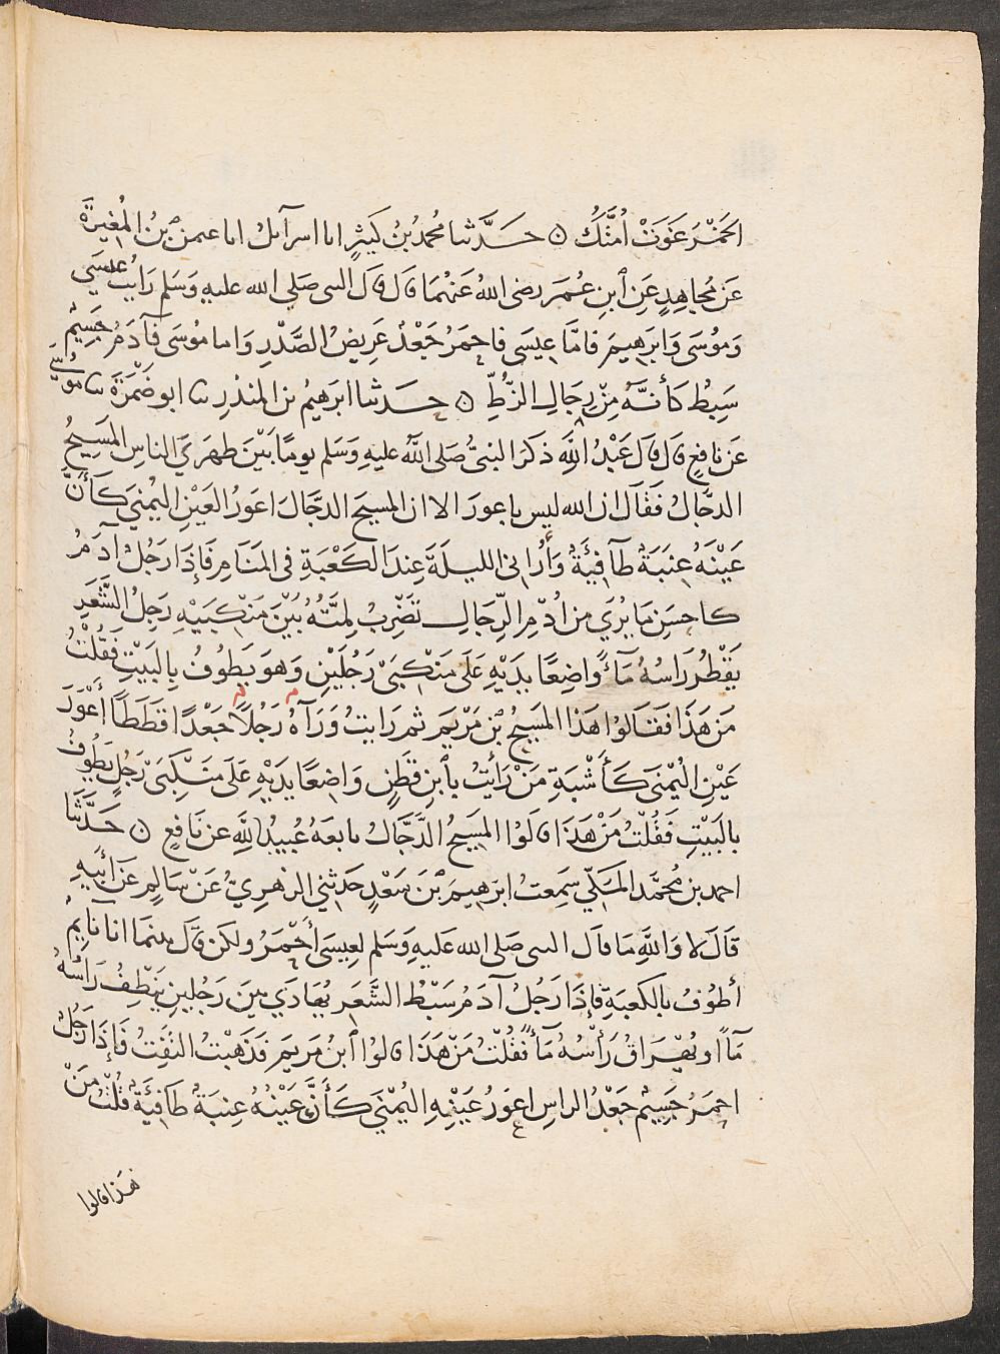 الخَمْرَ غَوَتْ أُمَّتُكَ ۝ حَدَّثنا مُحمدُ بْنُ كَثِيرٍ انا اسرآئلُ انا عثمن بْن المُغِيرَةِ
عَن مُجاهِدٍ عَنِ ابنِ عُمَرَ رضى اللهُ عَنْهُمَا قال قال النبي صَلي الله عليهِ وَسَلم رَايْتُ عيسَي
وَمُوسَى وَابرَهيمَ فامَّا عِيسَى فاحمَرُ جَعْدٌ عَرِيضُ الصَّدْرِ واما مُوسَى فآدَمُ جَسِيمٌ
سَبِطٌ كَأنَّهُ مِنْ رِجَالِ الزُّطِّ ۝ حدثنا ابرَهيمُ بن المنذرِ نا ابو ضَمْرَةَ نا مُوسَي
عَن نافعٍ قال قال عَبْدُ اللهِ ذكَرَ النبيُّ صَلى اللهُ عليهِ وَسَلم يومًا بَيْنَ ظهرَيِ الناسِ المَسِيحُ
الدجَّالُ فَقَالَ ان الله ليس باعورَ الا ان المسِيحَ الدجَّالَ اعوَرُ العَيْنِ اليُمْنَي كَأنَّ
عَيْنَهُ عِنَبَةٌ طآفِيَةٌ وَأُرَانِى الليلَةَ عِندَ الكَعْبَةِ فى المَنَامِ فَإِذَا رَجُلٌ آدَمُ
كاحسَنِ مَا يُرَي من اُدْمِ الرِّجَالِ تَضْرِبُ لِمَّتُهُ بَيْنَ مَنْكِبَيْهِ رَجِلُ الشَّعَرِ
يَقْطُرُ رَاسُهُ مَآءً وَاضِعًا يدَيْهِ عَلَى مَنْكِبَيْ رَجُلَيْنِ وَهوَ يَطوفُ بِالبَيْتِ فَقُلْتُ
مَن هَذَا فَقَالُوا هَذَا المَسِيحُ بْنُ مَرْيَمَ ثم رَايتُ وَرَآءَهُ رَجُلاً جَعْدًا قَطَطًا أَعْوَرَ
عَيْنِ الْيُمْنَى كَأَشْبَهِ مَنْ رَأَيْتُ بِابنِ قَطَنٍ وَاضِعًا يدَيْهِ عَلَى مَنْكِبَيْ رَجُلٍ يَطُوفُ
بالبَيْتِ فَقُلْتُ مَنْ هَذَا قالُوا المَسِيحُ الدَّجَّالُ تابعَهُ عُبيدُ اللهِ عن نَافعٍ ۝ حَدَّثَنَا
احمد بن مُحمَّد المَكِّي سَمِعتُ ابرَهيمَ بْنَ سَعْدٍ حَدثني الزهرِيُّ عَنْ سَالِمٍ عَنْ أَبيهِ
قَالَ لا وَاللهِ مَا قال النبي صَلى الله عَليهِ وَسَلم لِعِيسَى أَحْمَرُ ولكن قَالَ بينمَا انا نَايِمٌ
أطُوفُ بالكعبَةِ فإذَا رَجُلٌ آدَمُ سَبْطُ الشَّعَرِ يُهَادَي بينَ رَجُلينِ يَنْطِفُ رَاسُهُ
مَآءً او يُهْرَاقُ رَأْسُهُ مَآءً فَقُلْتُ مَنْ هَذَا قالوا ابنُ مَريمَ فَذَهَبْتُ التَفِتُ فَإِذَا رَجُلٌ
احمَرُ جَسِيمٌ جَعْدُ الراسِ اعوَرُ عَيْنِهِ اليُمْنَي كَأَنَّ عَيْنَهُ عِنبَةٌ طَافِيَةٌ قُلْتُ مَنْ
هَذا قالوا